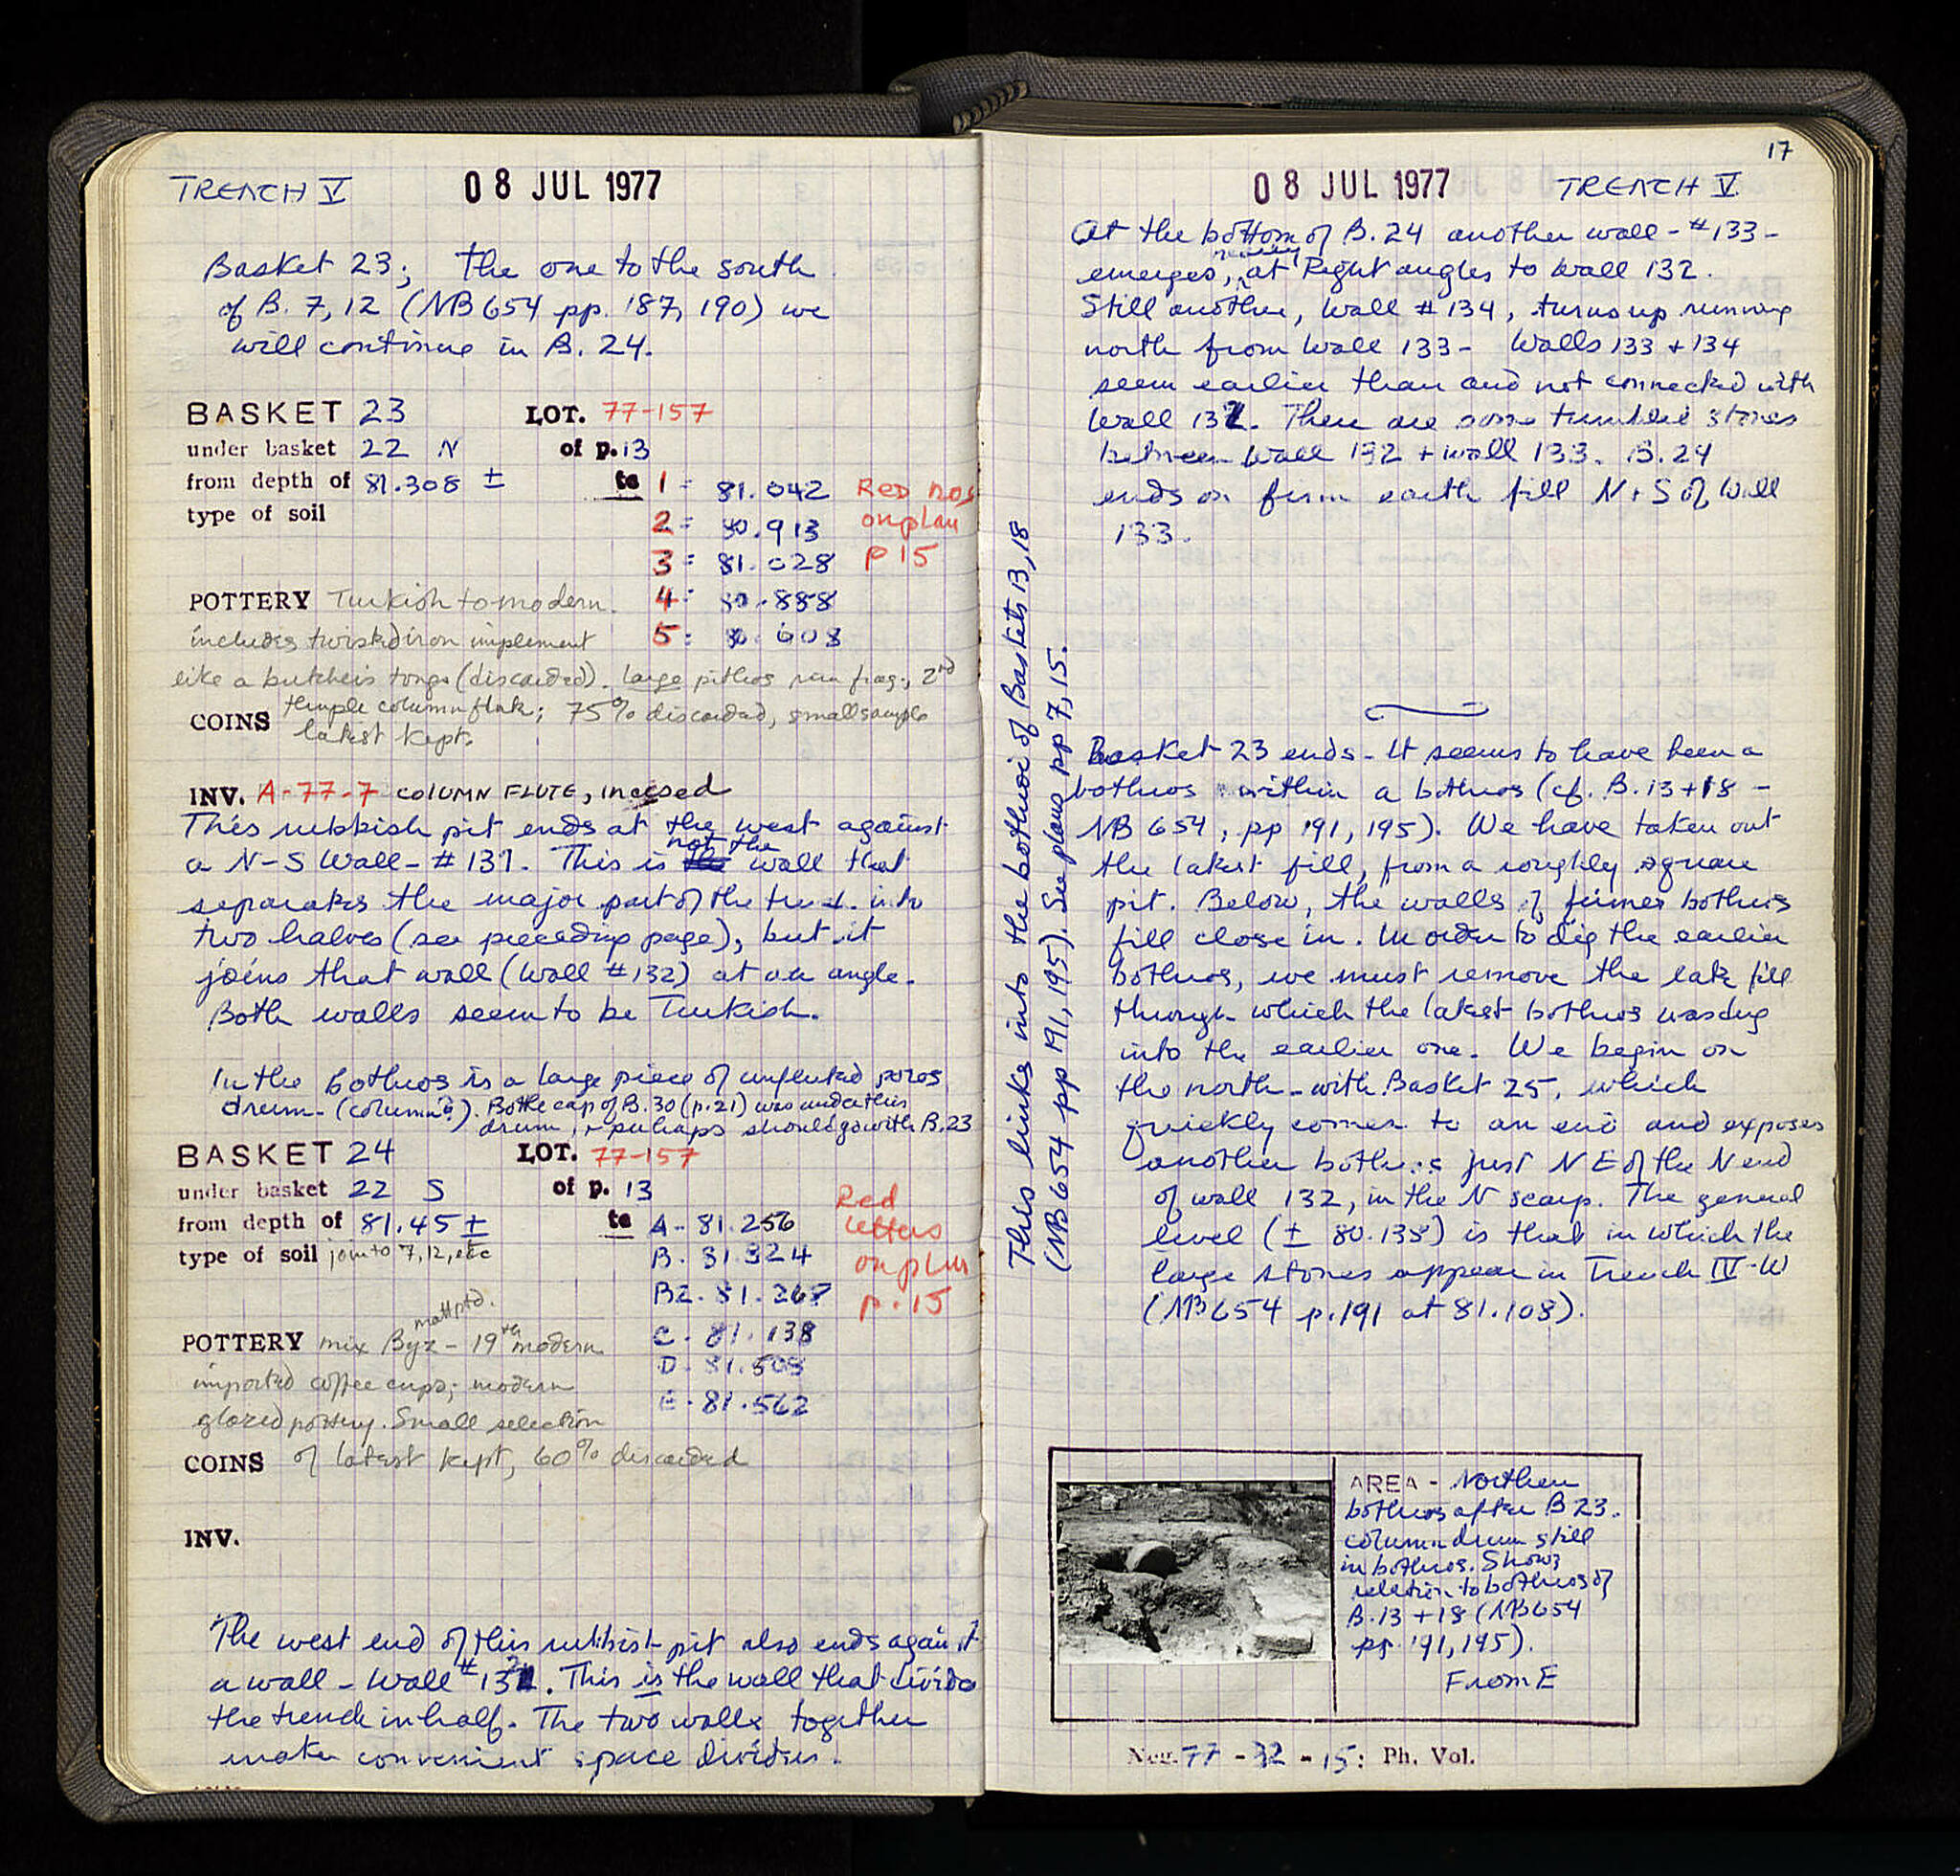 TRENCH V
08 JUL 1977
Basket 23; the one to the south
of B. 7, 12 (NB 654 pp. 187, 190) we
will continue in B. 24.
BASKET 23 LOT. 77-157
under basket 22 N of p. 13
from depth of 81.308 ± to 1 = 81.042 Red nos
type of soil 2 = 80.913 on plan
3 = 81.028 p 15
POTTERY Turkish to modern. 4 = 80.888
includes twisted iron implement 5 = 80.608
like a butcher's tongs (discarded). large pithos rim frag., 2nd
temple column flute; 75% discarded, small sample
COINS latest kept.
INV. A-77-7 COLUMN FLUTE, incised
This rubbish pit ends at the west against
a N-S Wall - #131. This is not the wall that
separates the major part of the trench into
two halves (see preceding page), but it
joins that wall (Wall #132) at an angle.
Both walls seem to be Turkish.
In the bothros is a large piece of unfluted poros
drum - (column?). Bottle cap of B. 30 (p. 21) was under this
drum, + perhaps should go with B. 23
BASKET 24 LOT. 77-157
under basket 22 S of p. 13
from depth of 81.45 ± to A - 81.256 Red
type of soil join to 7, 12, etc B. 81.324 letters
B2. 81.267 on plan
p. 15
matt ptd.
POTTERY mix Byz - 19th modern C - 81.138
imported coffee cups; modern D - 81.508
glazed pottery. Small selection E - 81.562
COINS of latest kept, 60% discarded
INV.
The west end of this rubbish pit also ends against
a wall - Wall #132. This is the wall that divides
the trench in half. The two walls together
make convenient space dividers.
17
08 JUL 1977
TRENCH V
At the bottom of B. 24 another wall - #133 -
emerges, nearly at Right angles to Wall 132.
Still another, Wall #134, turns up running
north from Wall 133 - Walls 133 + 134
seem earlier than and not connected with
Wall 132. There are some tumbled stones
between Wall 132 + wall 133. B. 24
ends on firm earth fill N + S of Wall
133.
This links into the bothroi of Baskets 13, 18
(NB 654 pp 191, 195). See plans pp 7, 15.
Basket 23 ends - It seems to have been a
bothros within a bothros (cf. B. 13 + 18 -
NB 654, pp 191, 195). We have taken out
the latest fill, from a roughly square
pit. Below, the walls of former bothros
fill close in. In order to dig the earlier
bothros, we must remove the late fill
through which the latest bothros was dug
into the earlier one. We begin on
the north - with Basket 25, which
quickly comes to an end and exposes
another bothros just NE of the N end
of wall 132, in the N scarp. The general
level (± 80.138) is that in which the
large stones appear in Trench IV-W
(NB 654 p. 191 at 81.108).
AREA - Northern
bothros after B 23.
column drum still
in bothros. Shows
relation to bothros of
B. 13 + 18 (NB 654
pp. 191, 195).
From E
Neg. 77 - 32 - 15 : Ph. Vol.